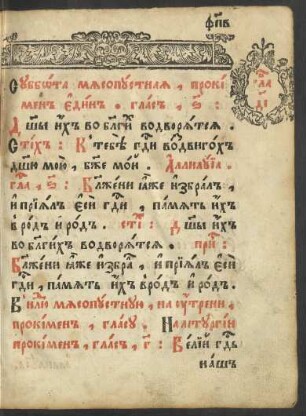 фп҃в
Суббѡта мѧсопустнаѧ, проки
менъ єдинъ. гласъ, ѕ҃:
Дш҃ы и҆хъ во бл҃гии водворѧтсѧ.
Стіхъ: К тебѣ гдⷭ҇и воздвигохъ
дш҃ю мою, бж҃е мой. Аллилуіа.
гла, ѕ҃: Блажени ꙗже избралъ,
и прїѧлъ єси гдⷭ҇и, память и҆хъ
в родъ и родъ. стіⷯ: дш҃ы и҆хъ
во бл҃гихъ водворѧтсѧ.
Блажени ꙗже избра, и прїѧлъ єси
гдⷭ҇и, память и҆хъ в родъ и родъ.
В нлю мѧсопустную, на утрени,
прокіменъ, гласу. На литургіи
прокіменъ, гласъ, г҃: Велїй гдⷭ҇ь
нашъ